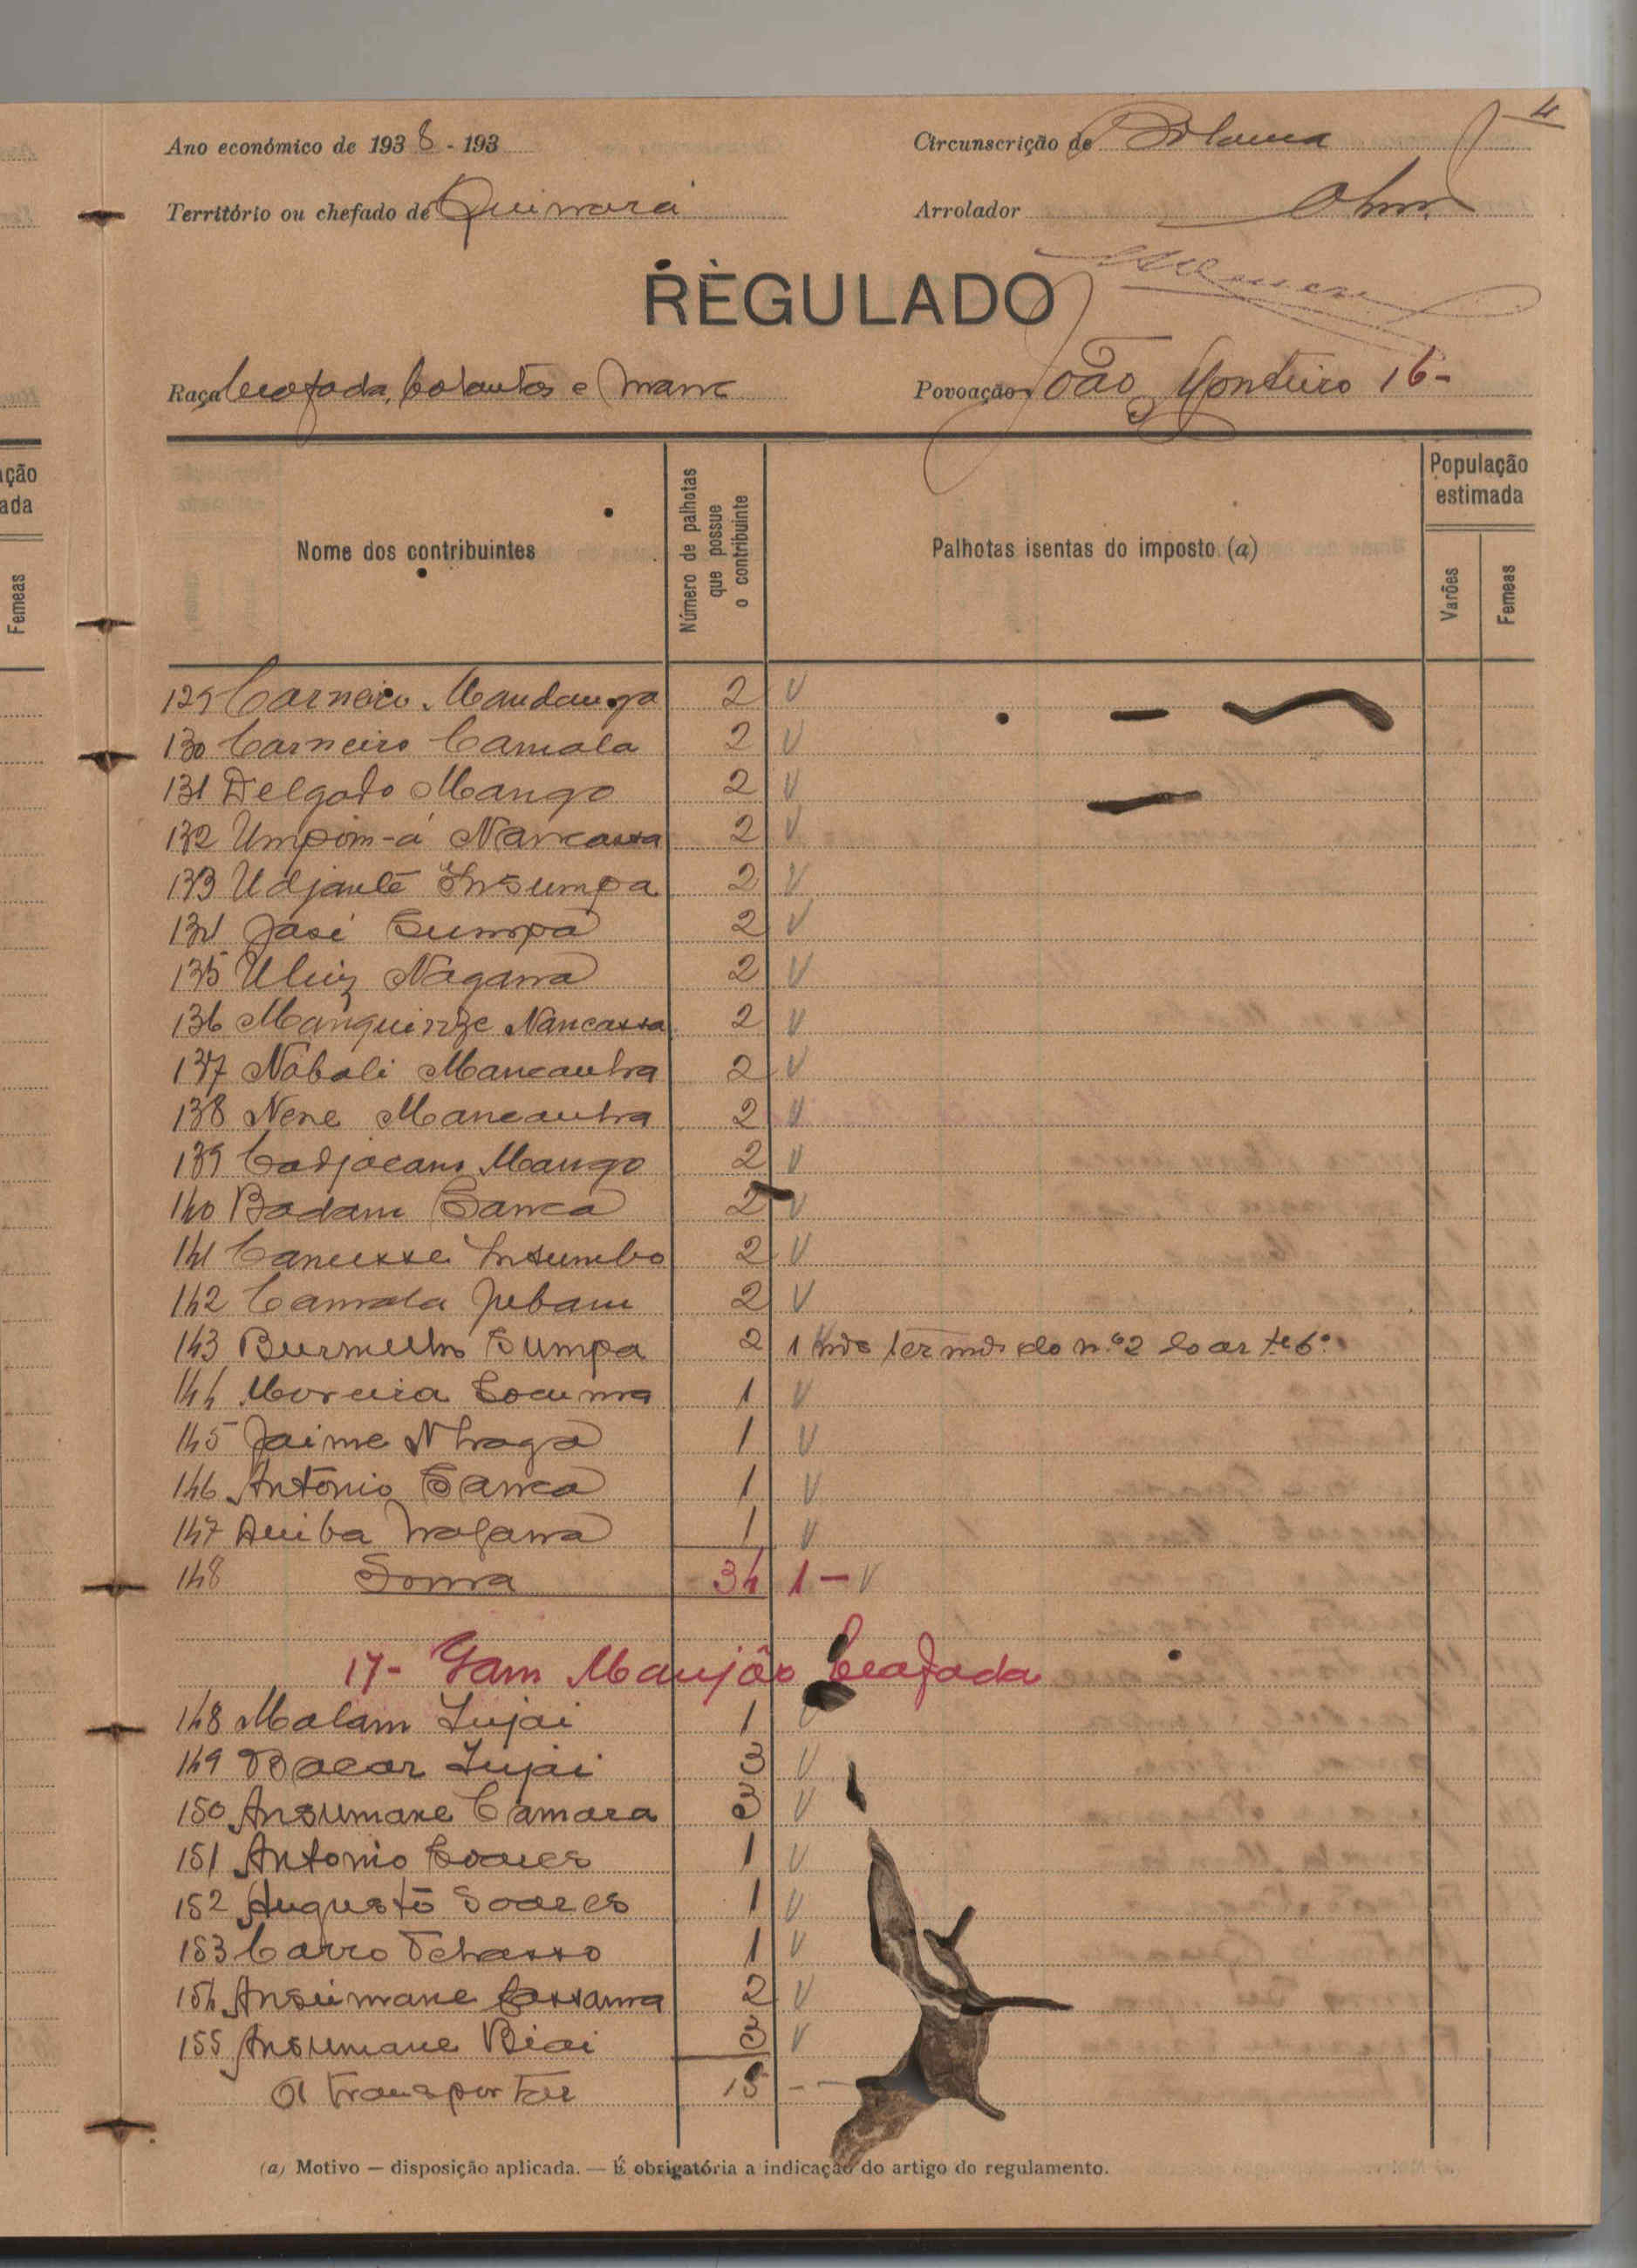 4
Ano económico de 1938 - 193
Circunscrição de Bolama
Território ou chefado de Quinará
Arrolador
REGULADO
Raça Beafada, Balantas e Manc
Povoação João Monteiro 16-
ção
ada
Femeas
Nome dos contribuintes
Número de palhotas que possue o contribuinte
Palhotas isentas do imposto (a)
População estimada
Varões
Femeas
129 Carneiro Mandanga 2 V
130 Carneiro Camala 2 V
131 Delgado Mango 2 V
132 Umpom-á Nancassa 2 V
133 Udjantè Insumpa 2 V
134 José Sumpa 2 V
135 Uluiz Nagana 2 V
136 Manquinze Nancassa 2 V
137 Nábali Mancanha 2 V
138 Nene Mancanha 2 V
139 Cadjocam Mango 2 V
140 Badam Sanca 2 V
141 Canusse Insumbo 2 V
142 Camala Jubam 2 V
143 Burmelho Sumpa 2 1 nos termos do n.º 2 do artº 6º
144 Moreira Locunna 1 V
145 Jaime Nhaga 1 V
146 António Sanca 1 V
147 Aniba 1 V
148 Soma 34 1 - V
17- Gam Manjão Beafada
148 Malam Injai 1 V
149 Bacar Injai 3 V
150 Ansumane Camara 3 V
151 Antonio Soares 1 V
152 Augusto Soares 1 V
153 Carro Tchasso 1 V
154 Ansumane Cassama 2 V
155 Ansumane Biai 3 V
A transportar 15 - -
(a) Motivo — disposição aplicada. — É obrigatória a indicação do artigo do regulamento.